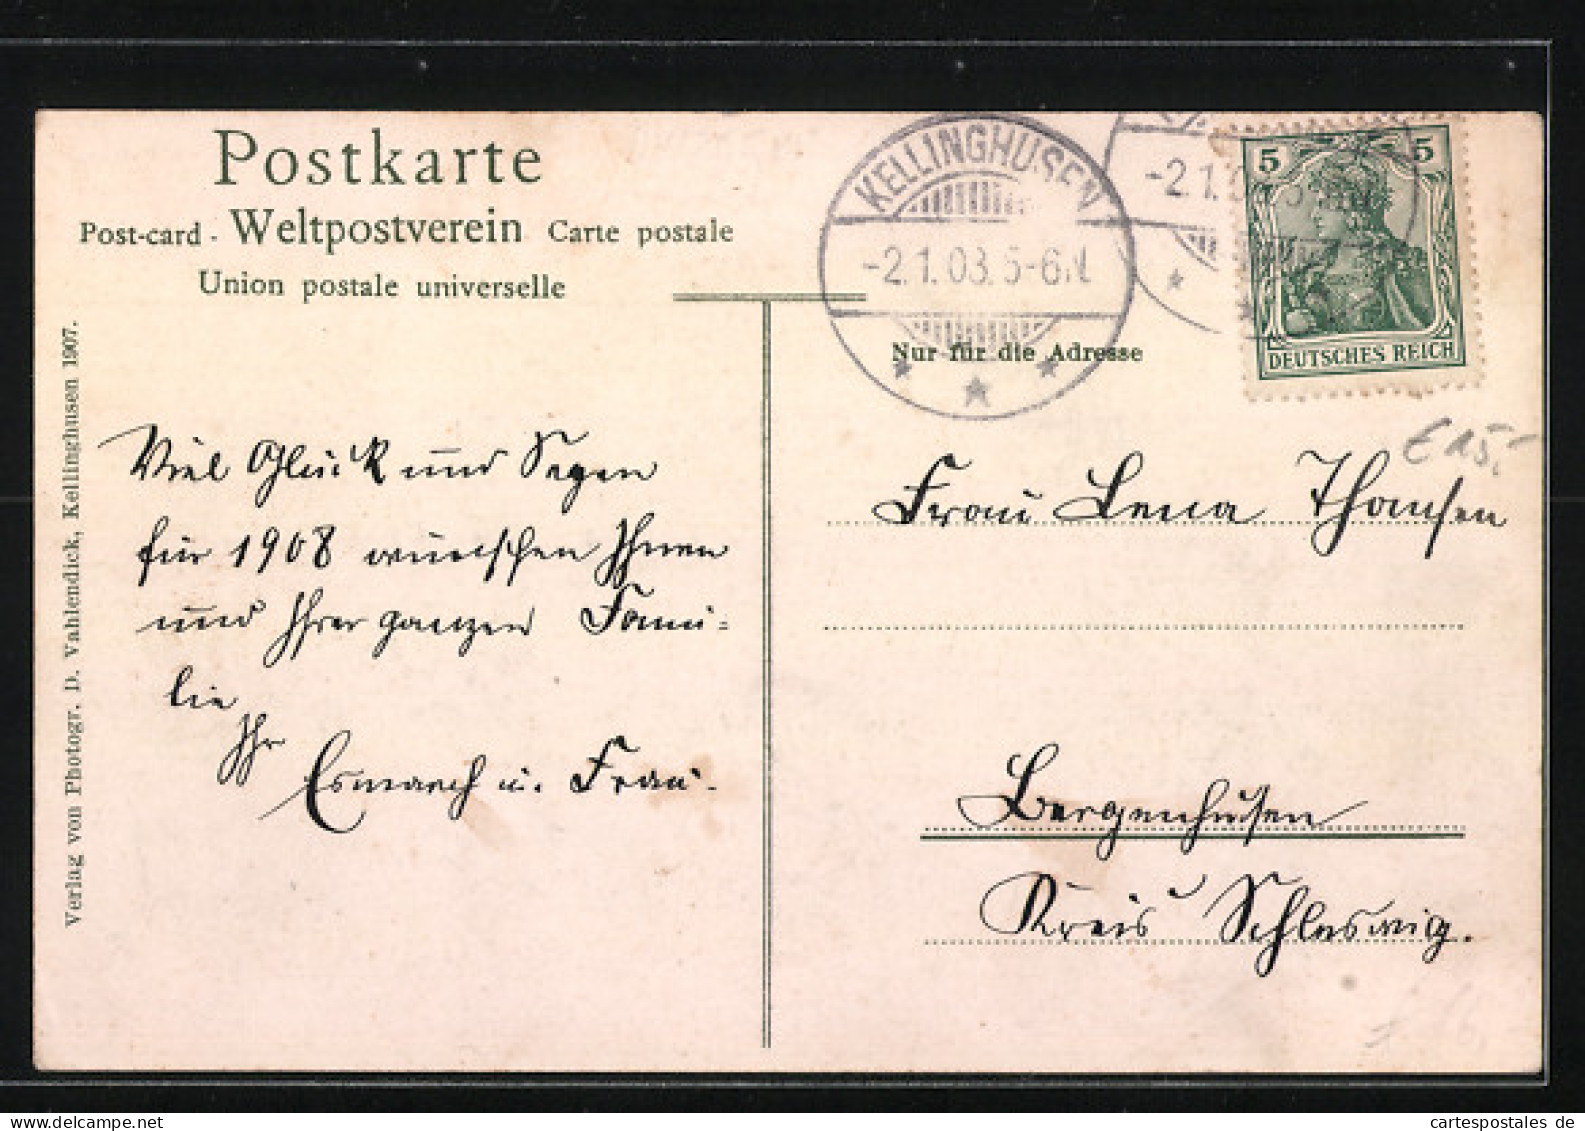 Postkarte
Post-card - Weltpostverein Carte postale
Union postale universelle
Verlag von Photogr. D. Vahlendick, Kellinghusen 1907.
Viel Glück und Segen
für 1908 wünschen Ihnen
und Ihrer ganzen Fami-
lie
Ihr
Esmarch u. Frau.
KELLINGHUSEN
-2.1.08.5-6N.
-2.1.0
5 5
DEUTSCHES REICH
Nur für die Adresse
€ 15,-
Frau Lena Thomsen
Bergenhusen
Kreis Schleswig.
cartespostales de